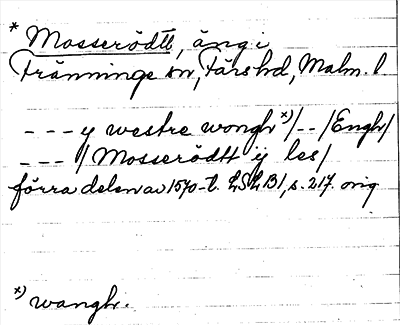 * Mosserödtt, äng i
Tränninge sn, Färs hd, Malm. l.
--- y westre wonghr x)/--/Enghr/
--- / Mosserödtt ij les/
förra delen av 1570-t. LSLB1, s. 217. orig
x) wanghr.